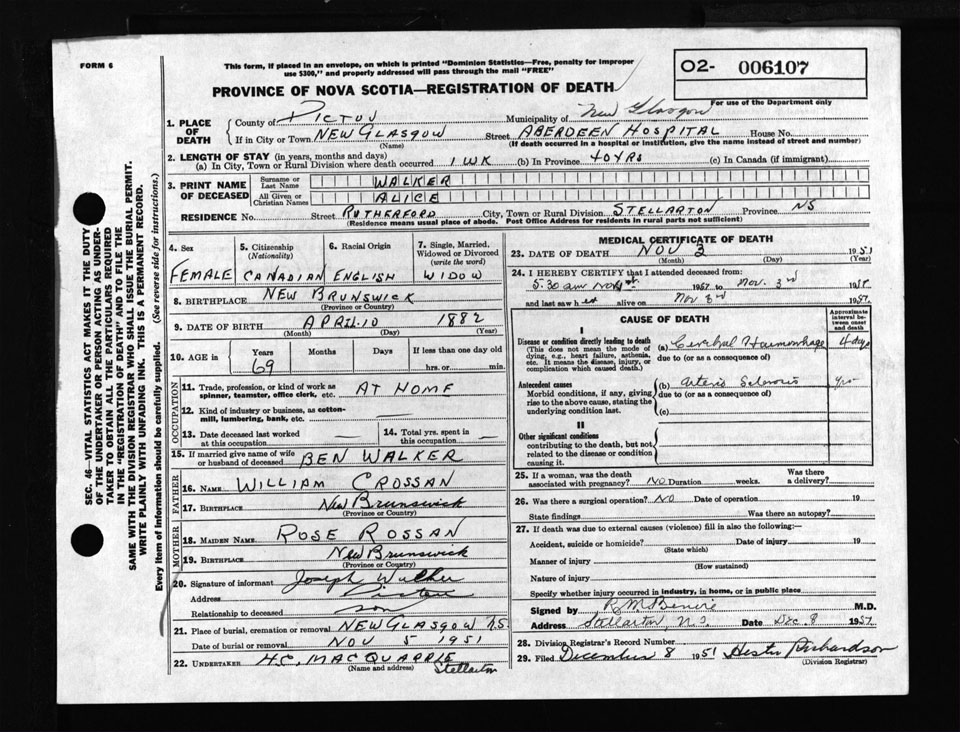 FORM 6
This form, if placed in an envelope, on which is printed "Dominion Statistics—Free, penalty for improper
use $300," and properly addressed will pass through the mail "FREE"
PROVINCE OF NOVA SCOTIA—REGISTRATION OF DEATH
O2- 006107
For use of the Department only
1. PLACE OF DEATH County of PICTOU Municipality of New Glasgow
If in City or Town NEW GLASGOW (Name) Street ABERDEEN HOSPITAL House No.
(If death occurred in a hospital or institution, give the name instead of street and number)
2. LENGTH OF STAY (in years, months and days)
(a) In City, Town or Rural Division where death occurred 1 WK (b) In Province 40 YRS (c) In Canada (if immigrant)
3. PRINT NAME OF DECEASED Surname or Last Name WALKER
All Given or Christian Names ALICE
RESIDENCE No. Street RUTHERFORD City, Town or Rural Division STELLARTON Province NS
(Residence means usual place of abode. Post Office Address for residents in rural parts not sufficient)
4. Sex FEMALE
5. Citizenship (Nationality) CANADIAN
6. Racial Origin ENGLISH
7. Single, Married, Widowed or Divorced (write the word) WIDOW
8. BIRTHPLACE NEW BRUNSWICK
(Province or Country)
9. DATE OF BIRTH APRIL 10 1882
(Month) (Day) (Year)
10. AGE in Years 69 Months Days If less than one day old hrs. or min.
OCCUPATION
11. Trade, profession, or kind of work as
spinner, teamster, office clerk, etc. AT HOME
12. Kind of industry or business, as cotton-
mill, lumbering, bank, etc.
13. Date deceased last worked
at this occupation —
14. Total yrs. spent in
this occupation —
15. If married give name of wife
or husband of deceased BEN WALKER
FATHER
16. NAME WILLIAM CROSSAN
17. BIRTHPLACE New Brunswick
(Province or Country)
MOTHER
18. MAIDEN NAME ROSE ROSSAN
19. BIRTHPLACE New Brunswick
(Province or Country)
20. Signature of informant Joseph Walker
Address Pictou
Relationship to deceased son
21. Place of burial, cremation or removal NEW GLASGOW N.S.
Date of burial or removal NOV 5 1951
22. UNDERTAKER H.C. MACQUARRIE Stellarton
(Name and address)
MEDICAL CERTIFICATE OF DEATH
23. DATE OF DEATH NOV 3 1951
(Month) (Day) (Year)
24. I HEREBY CERTIFY that I attended deceased from:
5:30 am Nov 1951 to Nov. 3rd 1951
and last saw her alive on Nov 3rd 1951
CAUSE OF DEATH
Approximate interval between onset and death
I
Disease or condition directly leading to death (a) Cerebral Haemorrhage 4 days
(This does not mean the mode of dying, e.g., heart failure, asthenia, etc. It means the disease, injury, or complication which caused death.)
due to (or as a consequence of)
Antecedent causes (b) Arterio Sclerosis yrs
Morbid conditions, if any, giving rise to the above cause, stating the underlying condition last.
due to (or as a consequence of)
(c)
II
Other significant conditions
contributing to the death, but not
related to the disease or condition
causing it.
25. If a woman, was the death
associated with pregnancy? NO Duration weeks. Was there a delivery?
26. Was there a surgical operation? NO Date of operation 19
State findings Was there an autopsy?
27. If death was due to external causes (violence) fill in also the following:—
Accident, suicide or homicide? Date of injury 19
(State which)
Manner of injury
(How sustained)
Nature of injury
Specify whether injury occurred in industry, in home, or in public place
Signed by M.D.
Address Stellarton, N.S. Date Dec. 8 1951
28. Division Registrar's Record Number
29. Filed December 8 1951 Hester Richardson
(Division Registrar)
SEC. 46—VITAL STATISTICS ACT MAKES IT THE DUTY
OF THE UNDERTAKER OR PERSON ACTING AS UNDER-
TAKER TO OBTAIN ALL THE PARTICULARS REQUIRED
IN THE "REGISTRATION OF DEATH" AND TO FILE THE
SAME WITH THE DIVISION REGISTRAR WHO SHALL ISSUE THE BURIAL PERMIT.
WRITE PLAINLY WITH UNFADING INK. THIS IS A PERMANENT RECORD.
Every item of Information should be carefully supplied. (See reverse side for instructions.)